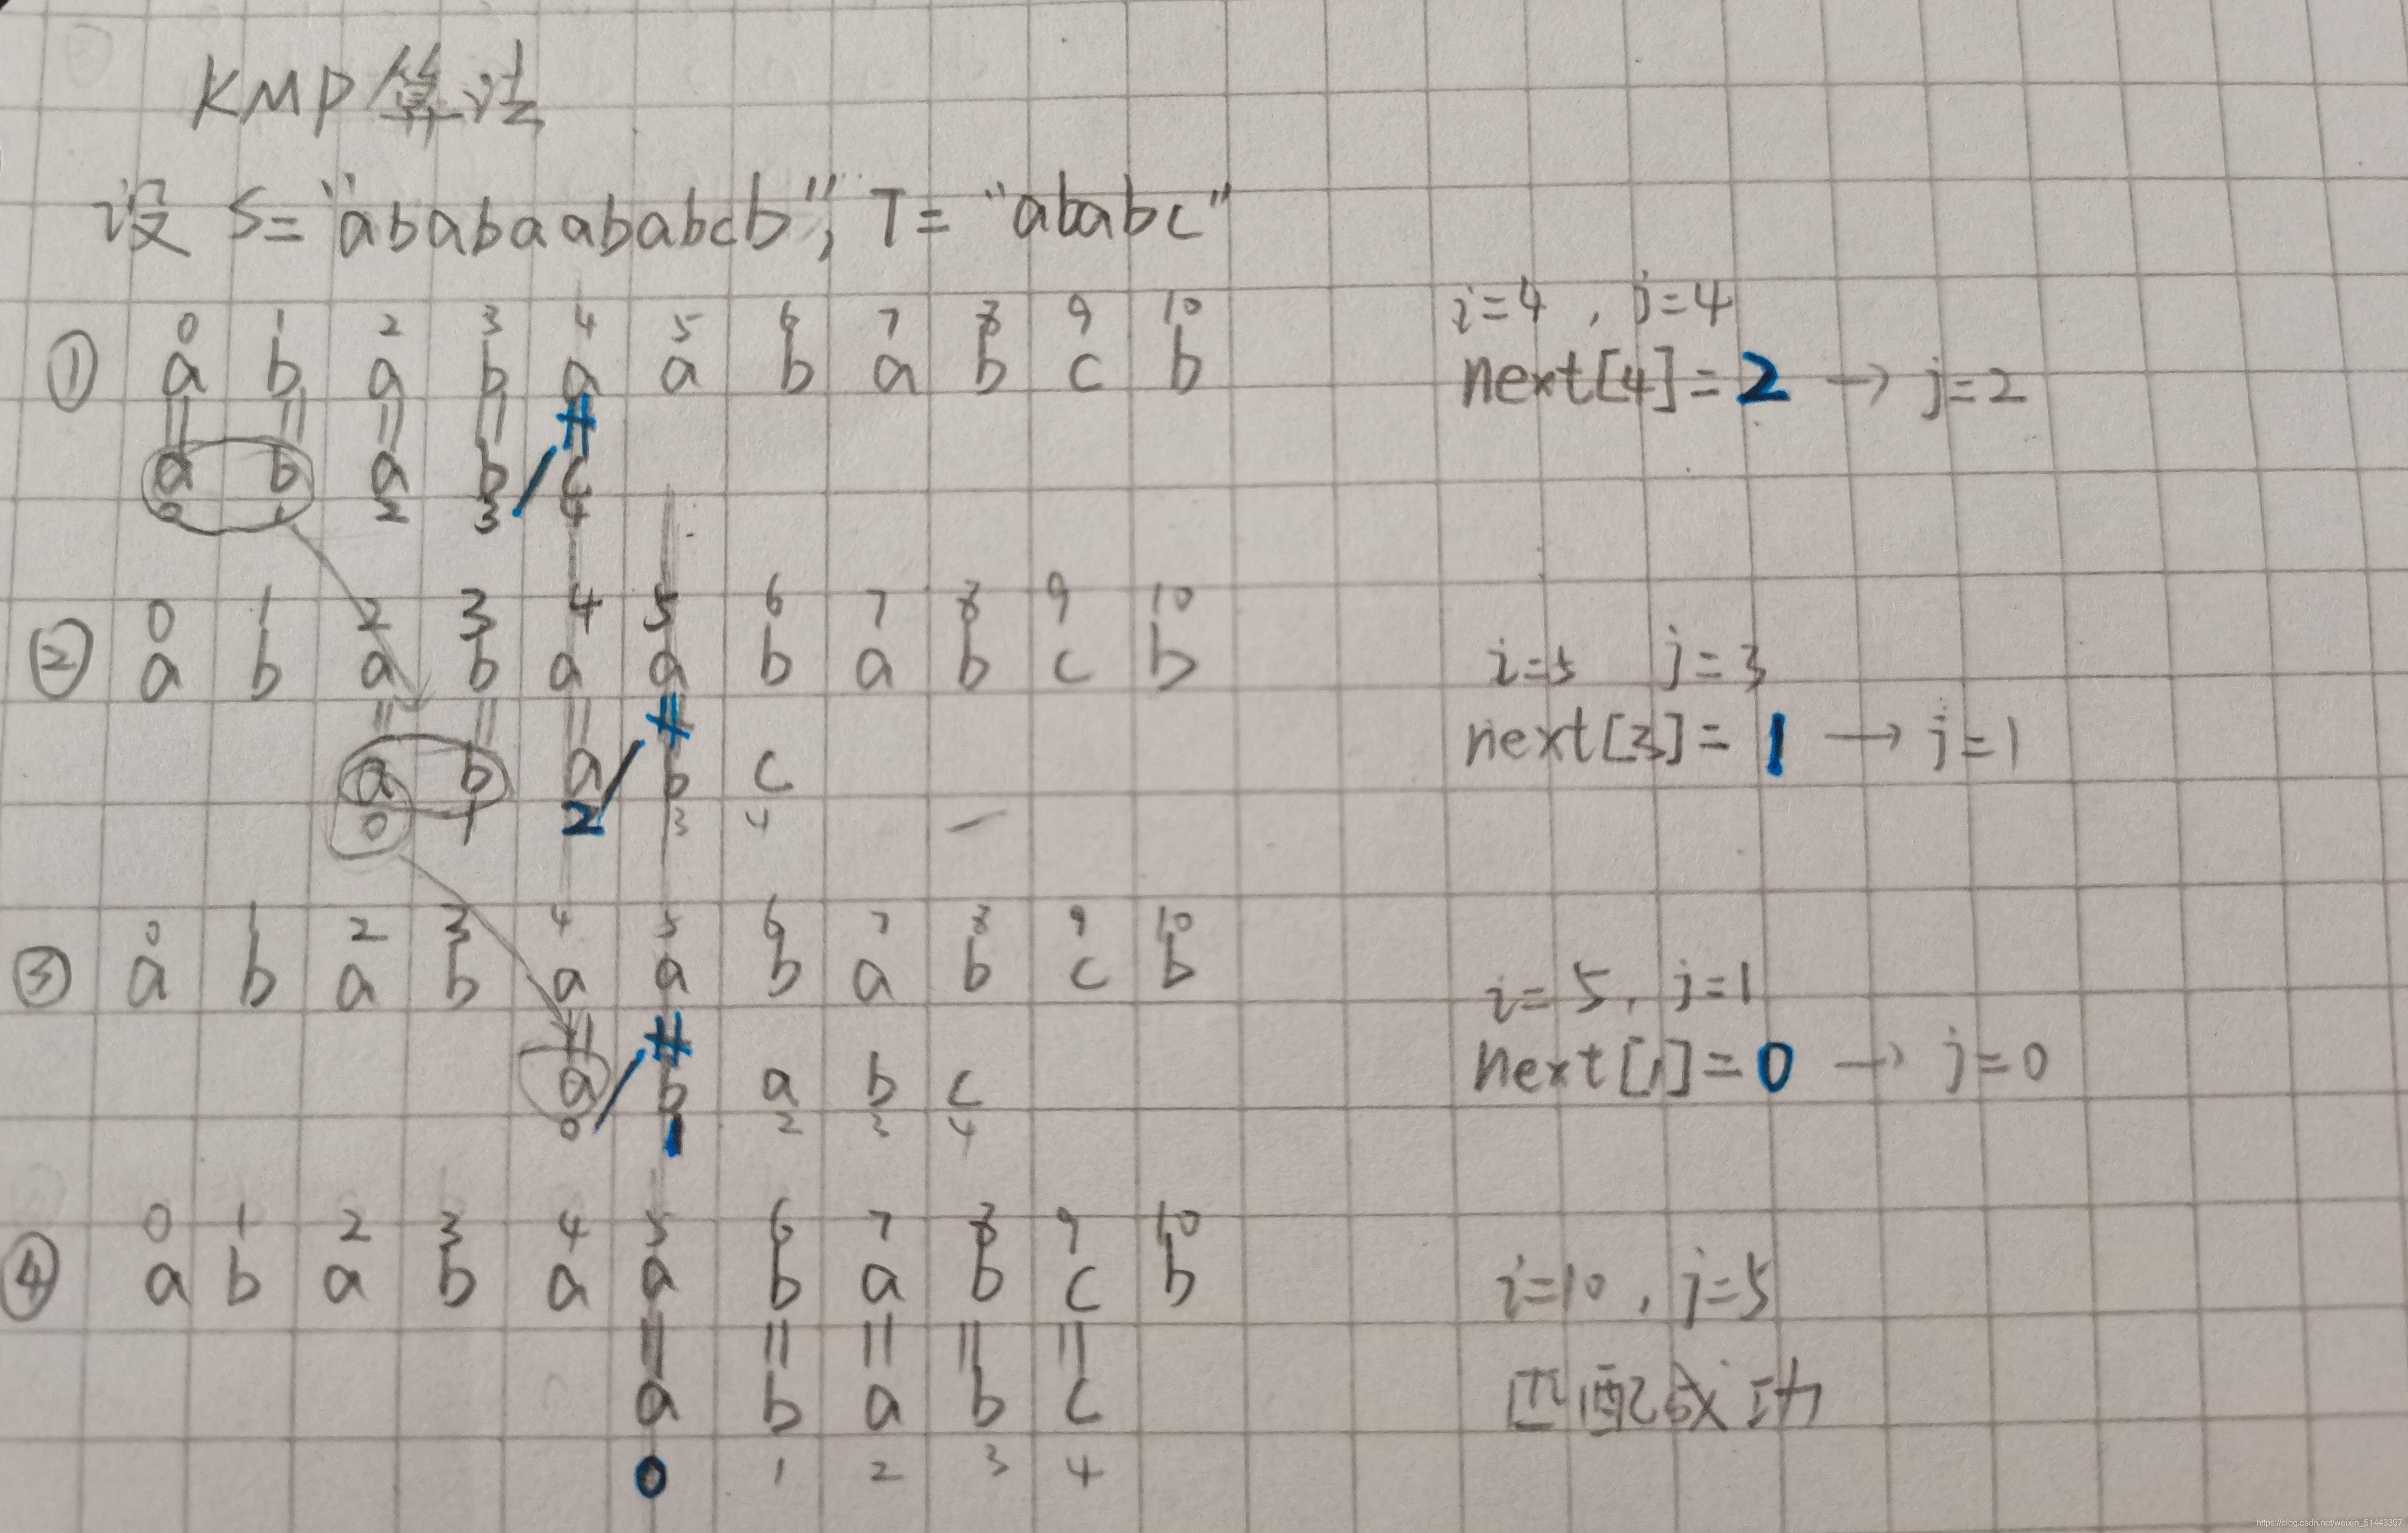 KMP算法
设 S="ababaababcb", T="ababc"
0 1 2 3 4 5 6 7 8 9 10
① a b a b a a b a b c b
i=4, j=4
next[4]=2 → j=2
= = = = ≠
a b a b c
0 1 2 3 4
0 1 2 3 4 5 6 7 8 9 10
② a b a b a a b a b c b
i=5 j=3
next[3]=1 → j=1
= = = ≠
a b a b c
0 1 2 3 4
0 1 2 3 4 5 6 7 8 9 10
③ a b a b a a b a b c b
i=5, j=1
next[1]=0 → j=0
= ≠
a b a b c
0 1 2 3 4
0 1 2 3 4 5 6 7 8 9 10
④ a b a b a a b a b c b
i=10, j=5
匹配成功
= = = = =
a b a b c
0 1 2 3 4
https://blog.csdn.net/weixin_51443397